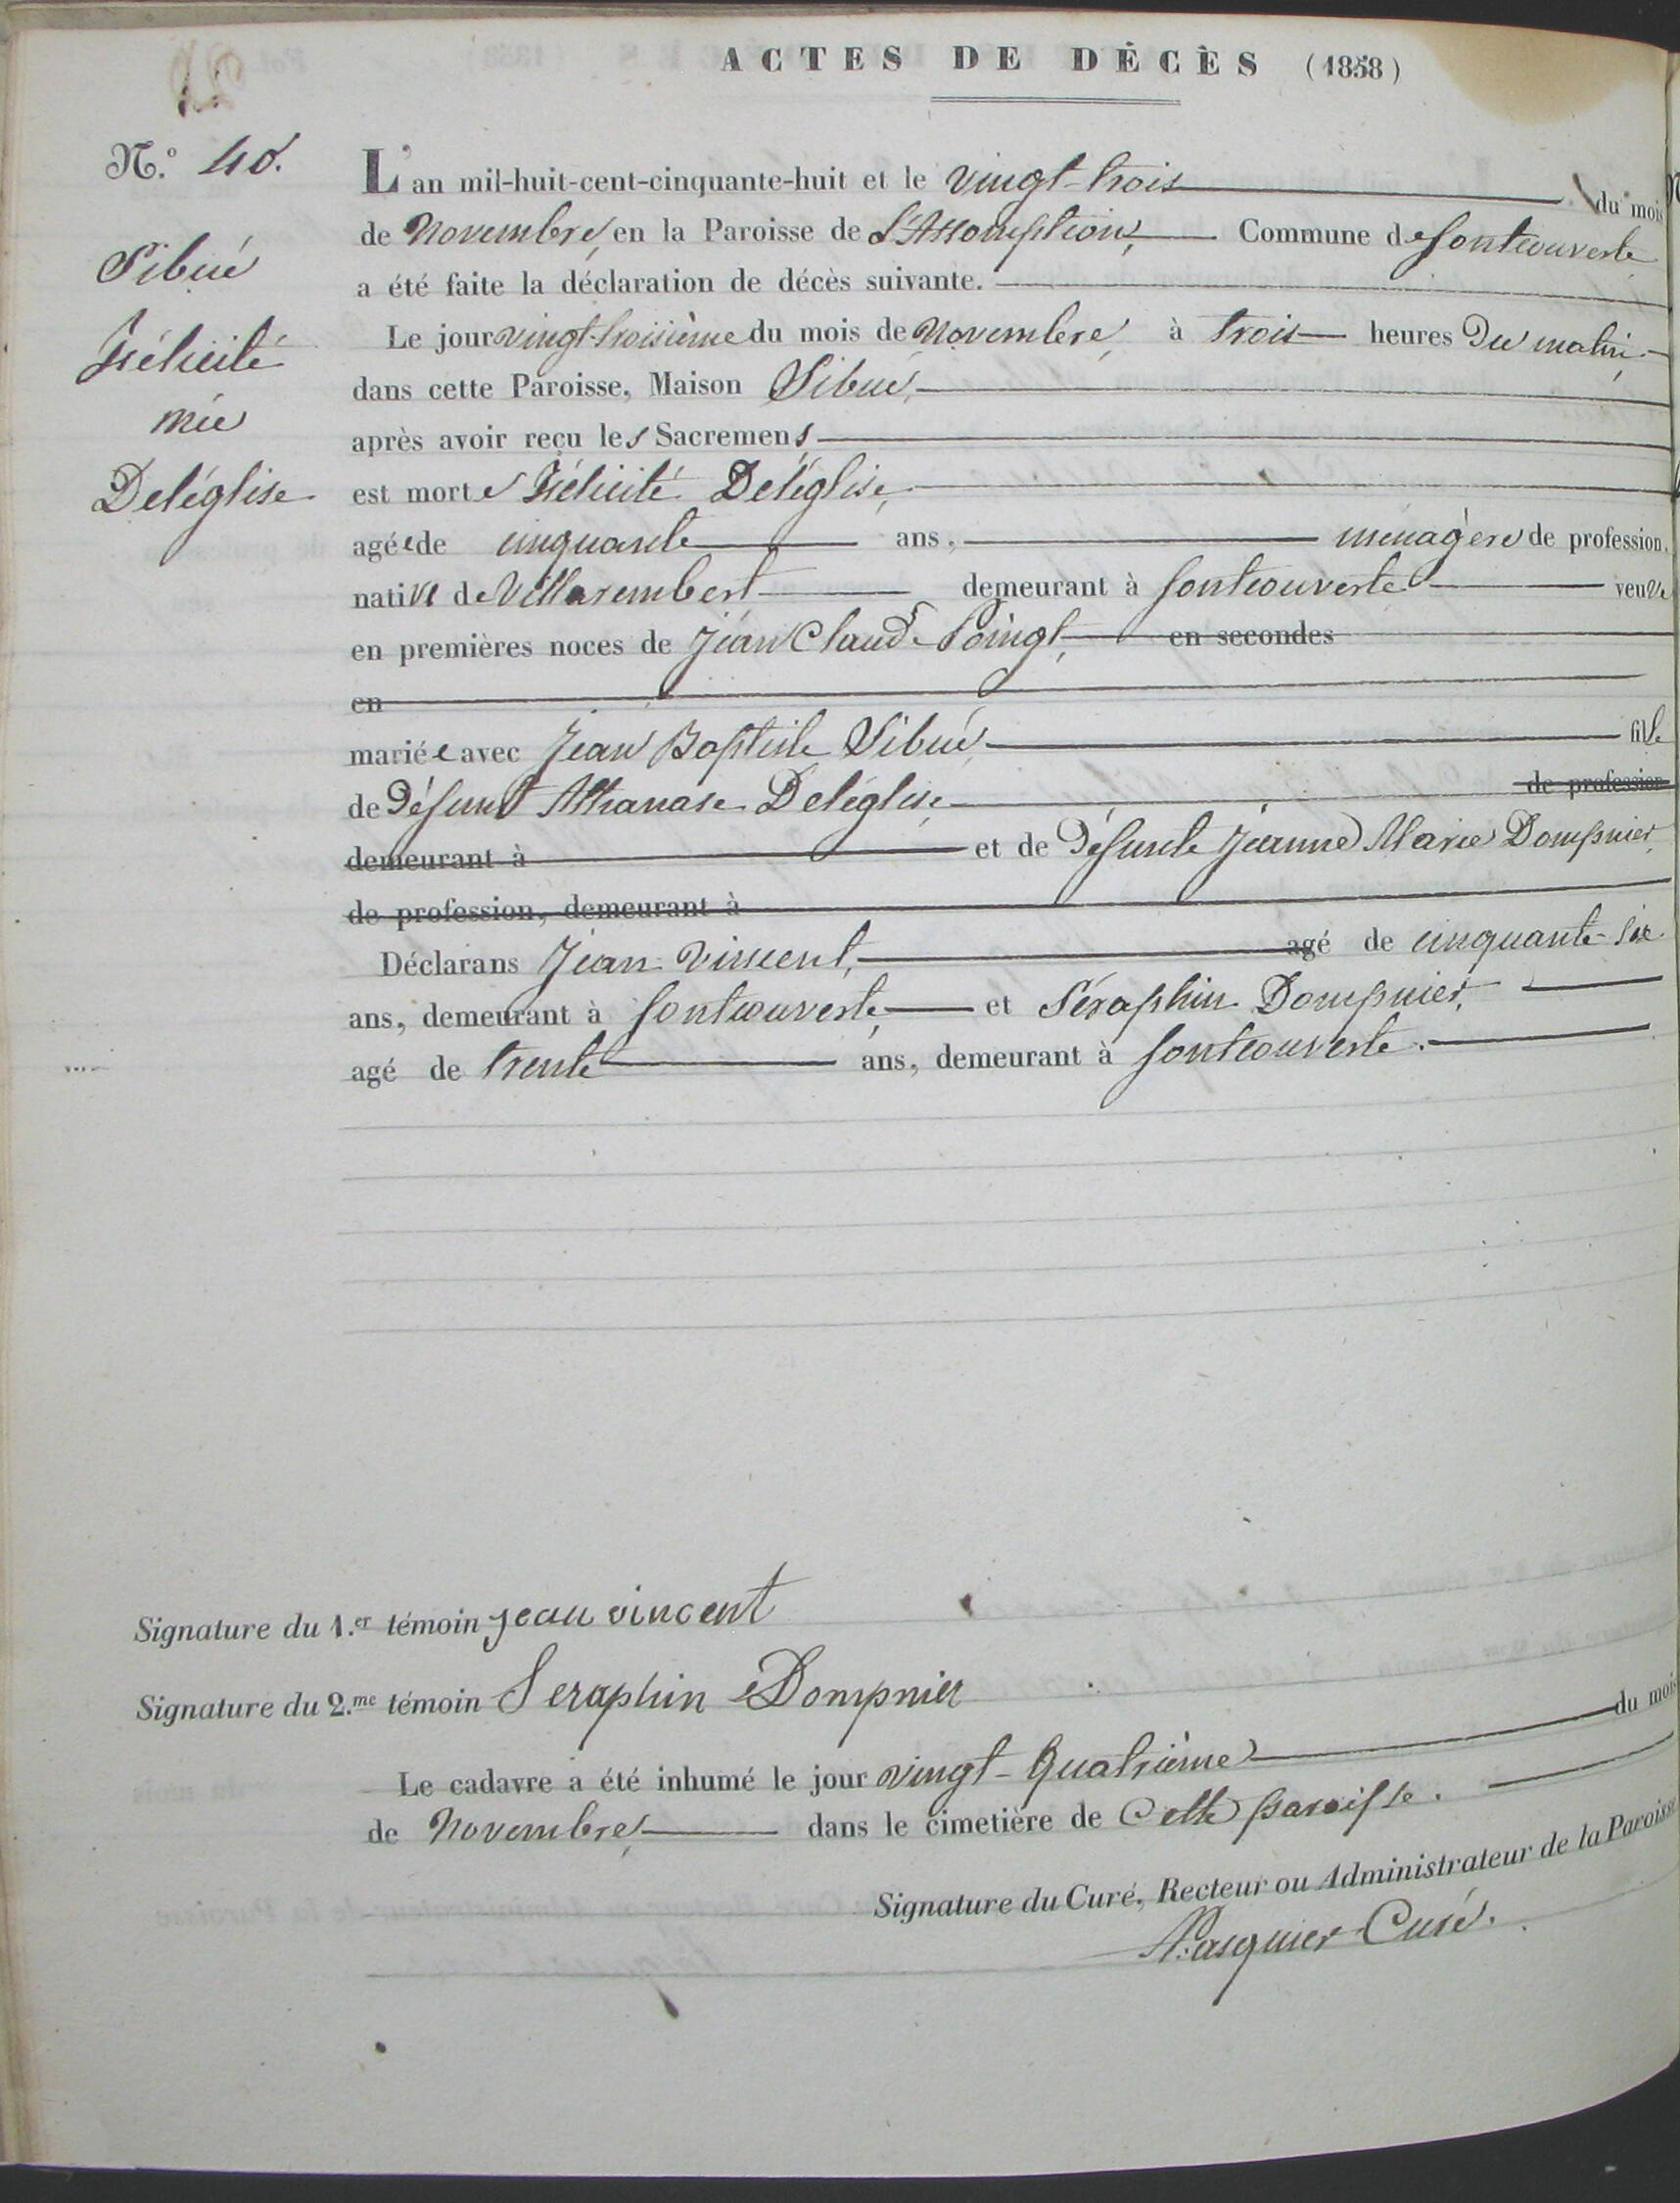 ACTES DE DÉCÈS (1858)
N.º 40.
Sibué
Félicité
née
Deléglise
L'an mil-huit-cent-cinquante-huit et le vingt-trois du mois
de Novembre, en la Paroisse de L'Assomption, Commune de fontcouverte
a été faite la déclaration de décès suivante.
Le jour vingt-troisième du mois de Novembre, à trois heures du matin,
dans cette Paroisse, Maison Sibué,
après avoir reçu les Sacremens
est morte Félicité Deléglise,
agée de cinquante ans, ménagère de profession,
native de Villarembert demeurant à fontcouverte veuve
en premières noces de Jean Claude Poingt, en secondes
en
mariée avec Jean Baptiste Sibué fille
de défunt Athanase Deléglise, de profession
demeurant à et de défunte Jeanne Marie Dompnier
de profession, demeurant à
Déclarans Jean Vincent, agé de cinquante-six
ans, demeurant à fontcouverte, et Séraphin Dompnier,
agé de trente ans, demeurant à fontcouverte.
Signature du 1.er témoin jean vincent
Signature du 2.me témoin Seraphin Dompnier
Le cadavre a été inhumé le jour vingt-quatrième du mois
de Novembre, dans le cimetière de Cette paroisse.
Signature du Curé, Recteur ou Administrateur de la Paroisse
Pasquier Curé.